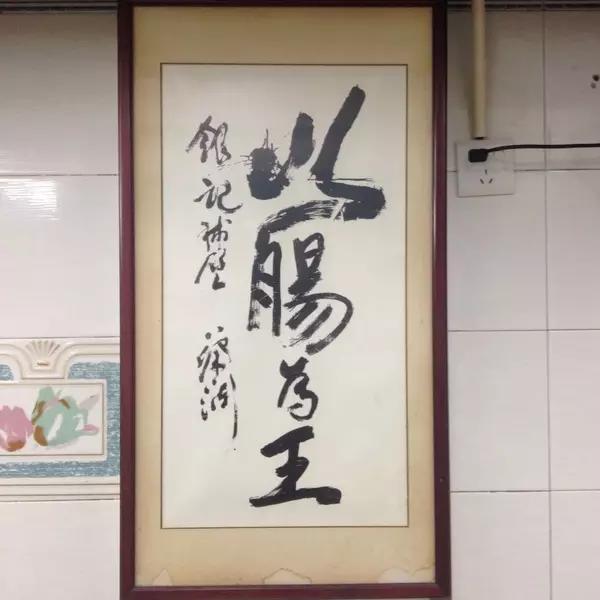 以腸為王
銀記補壁
蔡瀾